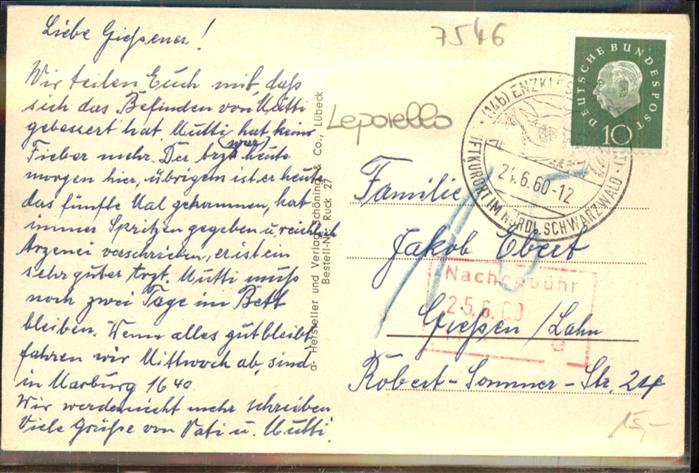 Liebe Gießener!
Wir teilen Euch mit, daß
sich das Befinden von Mutti
gebessert hat. Mutti hat kein
Fieber mehr. Der Arzt war heute
morgen hier, übrigens ist er heute
das fünfte Mal gekommen, hat
immer Spritzen gegeben u. reichlich
Arzenei vorschrieben, er ist ein
sehr guter Arzt. Mutti muß
noch zwei Tage im Bett
bleiben. Wenn alles gut bleibt
fahren wir Mittwoch ab, sind
in Marburg 16 40.
Wir werden nicht mehr schreiben
Viele Grüße von Vati u. Mutti.
Hersteller und Verlag Schöning & Co., Lübeck
Bestell-Nr. Ruck 27
7546
Leporello
DEUTSCHE BUNDESPOST
10
(14b) ENZKL
21.6.60-12
LUFTKURORT IM NÖRDL. SCHWARZWALD
Familie
Jakob Ebert
Nachgebühr
25.6.60
Gießen/Lahn
Robert-Sommer-Str. 24
15,-